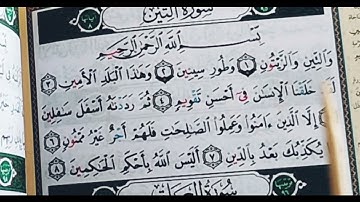 سُورَةُ التِّينِ
بِسْمِ اللَّهِ الرَّحْمَٰنِ الرَّحِيمِ
وَالتِّينِ وَالزَّيْتُونِ ۝١ وَطُورِ سِينِينَ ۝٢ وَهَٰذَا الْبَلَدِ الْأَمِينِ ۝٣
خَلَقْنَا الْإِنسَانَ فِي أَحْسَنِ تَقْوِيمٍ ۝٤ ثُمَّ رَدَدْنَاهُ أَسْفَلَ سَافِلِينَ ۝٥
إِلَّا الَّذِينَ ءَامَنُوا وَعَمِلُوا الصَّالِحَاتِ فَلَهُمْ أَجْرٌ غَيْرُ مَمْنُونٍ ۝٦
يُكَذِّبُكَ بَعْدُ بِالدِّينِ ۝٧ أَلَيْسَ اللَّهُ بِأَحْكَمِ الْحَاكِمِينَ ۝٨